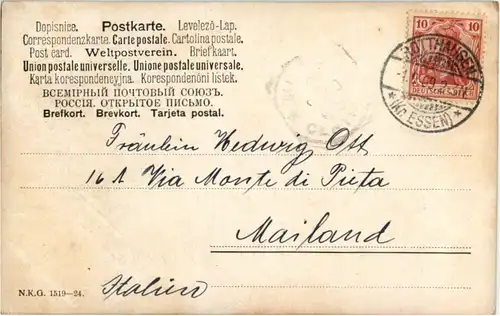 Dopisnice. Postkarte. Levelező-Lap.
Correspondenzkarte. Carte postale. Cartolina postale.
Post card. Weltpostverein. Briefkaart.
Union postale universelle. Unione postale universale.
Karta korespondencyjna. Korespondenöni listek.
ВСЕМІРНЫЙ ПОЧТОВЫЙ СОЮЗЪ.
РОССІЯ. ОТКРЫТОЕ ПИСЬМО.
Brefkort. Brevkort. Tarjeta postal.
10 10
DEUTSCHES
(KR ESSEN)
Fräulein Hedwig Ott
16 A Via Monte di Pieta
Mailand
Italien
N.K.G. 1519—24.